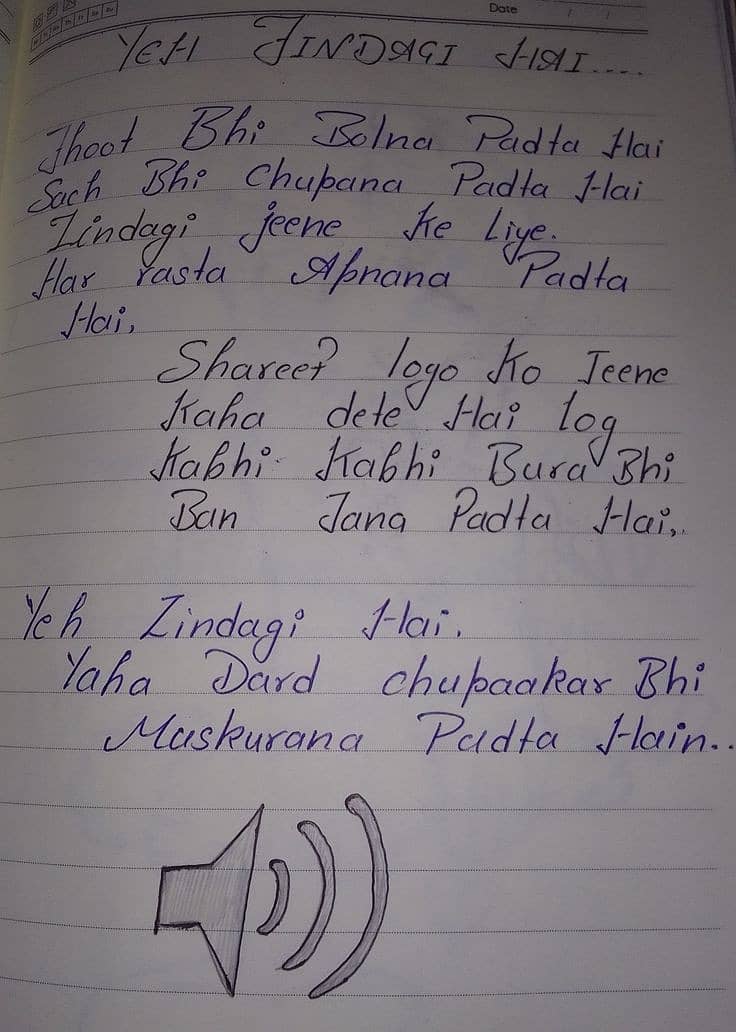 Date
YEH JINDAGI HAI....
Jhoot Bhi Bolna Padta Hai
Sach Bhi Chupana Padta Hai
Zindagi jeene Ke Liye.
Har rasta Apnana Padta
Hai,
Shareef logo Ko Jeene
Kaha dete Hai log
Kabhi Kabhi Bura Bhi
Ban Jana Padta Hai,.
Yeh Zindagi Hai.
Yaha Dard chupaakar Bhi
Muskurana Padta Hain..